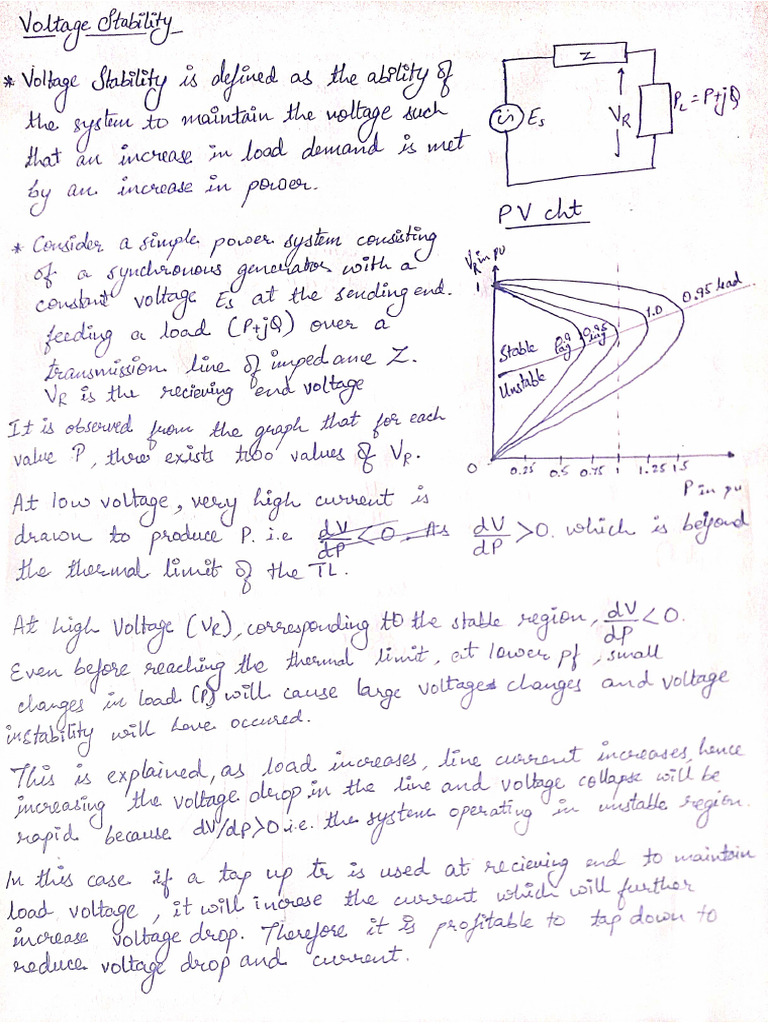 Voltage Stability
* Voltage Stability is defined as the ability of
the system to maintain the voltage such
that an increase in load demand is met
by an increase in power.
Z
Es
VR
PL = P+jQ
PV cht
* Consider a simple power system consisting
of a synchronous generator with a
constant voltage Es at the sending end.
feeding a load (P+jQ) over a
transmission line of impedance Z.
VR is the recieving end voltage
It is observed from the graph that for each
value P, there exists two values of VR.
VR in pu
1
0.95 lead
1.0
0.95 lag
0.9 lag
Stable
Unstable
0 0.25 0.5 0.75 1 1.25 1.5
P in pu
At low voltage, very high current is
drawn to produce P. i.e dV/dP < 0. As dV/dP > 0. which is beyond
the thermal limit of the TL.
At high Voltage (VR), corresponding to the stable region, dV/dP < 0.
Even before reaching the thermal limit, at lower pf, small
changes in load (P) will cause large voltage changes and voltage
instability will have occured.
This is explained, as load increases, line current increases, hence
increasing the voltage drop in the line and voltage collapse will be
rapid because dV/dP>0 i.e. the system operating in unstable region.
In this case if a tap up tr is used at recieving end to maintain
load voltage, it will increse the current which will further
increase voltage drop. Therefore it is profitable to tap down to
reduce voltage drop and current.